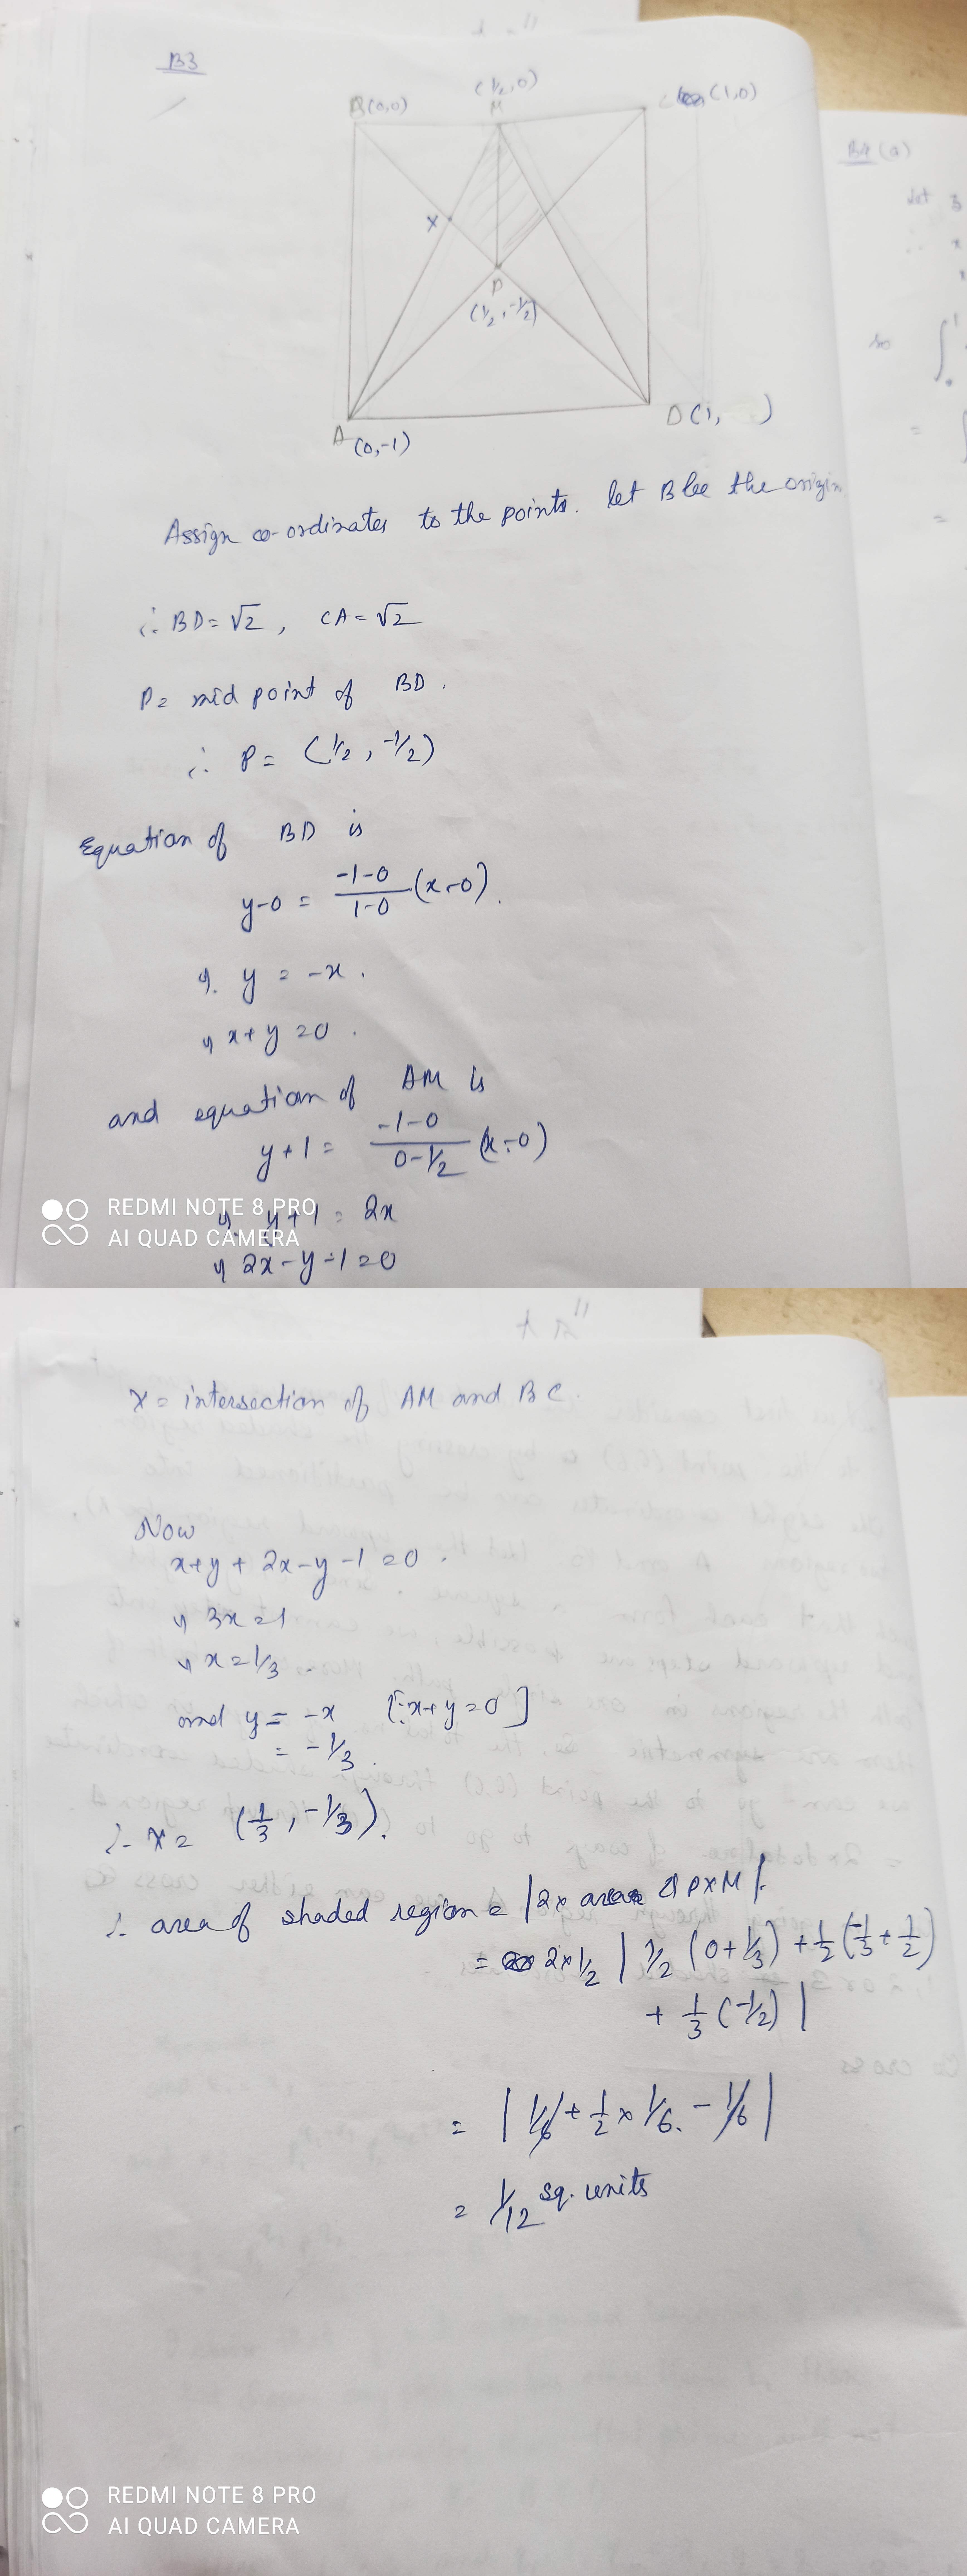 B3
(1/2, 0)
B(0,0) M C (1,0)
X
P
(1/2, -1/2)
A (0,-1)
D(1, )
B4 (a)
Let z
so
Assign co-ordinates to the points. let B be the origin
∴ BD = √2 , CA = √2
P = mid point of BD.
∴ P = (1/2, -1/2)
Equation of BD is
y-0 = (-1-0)/(1-0) (x-0).
⇒ y = -x .
⇒ x+y = 0 .
and equation of AM is
y+1 = (-1-0)/(0-1/2) (x-0)
⇒ y+1 = 2x
⇒ 2x-y-1=0
REDMI NOTE 8 PRO
AI QUAD CAMERA
X = intersection of AM and BC.
Now
x+y + 2x-y-1 = 0 .
⇒ 3x = 1
⇒ x = 1/3
and y = -x [∵ x+y=0]
= -1/3 .
∴ X = (1/3, -1/3).
∴ area of shaded region = |2x area Δ PXM|.
= 2x1/2 | 1/2 (0+1/3) + 1/2 (-1/3 + 1/2)
+ 1/3 (-1/2) |
= | 1/6 + 1/2 x 1/6. - 1/6 |
= 1/12 sq. units
REDMI NOTE 8 PRO
AI QUAD CAMERA